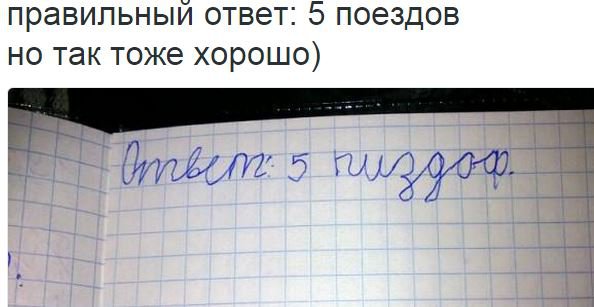 правильный ответ: 5 поездов
но так тоже хорошо)
Ответ: 5 пиздоф.